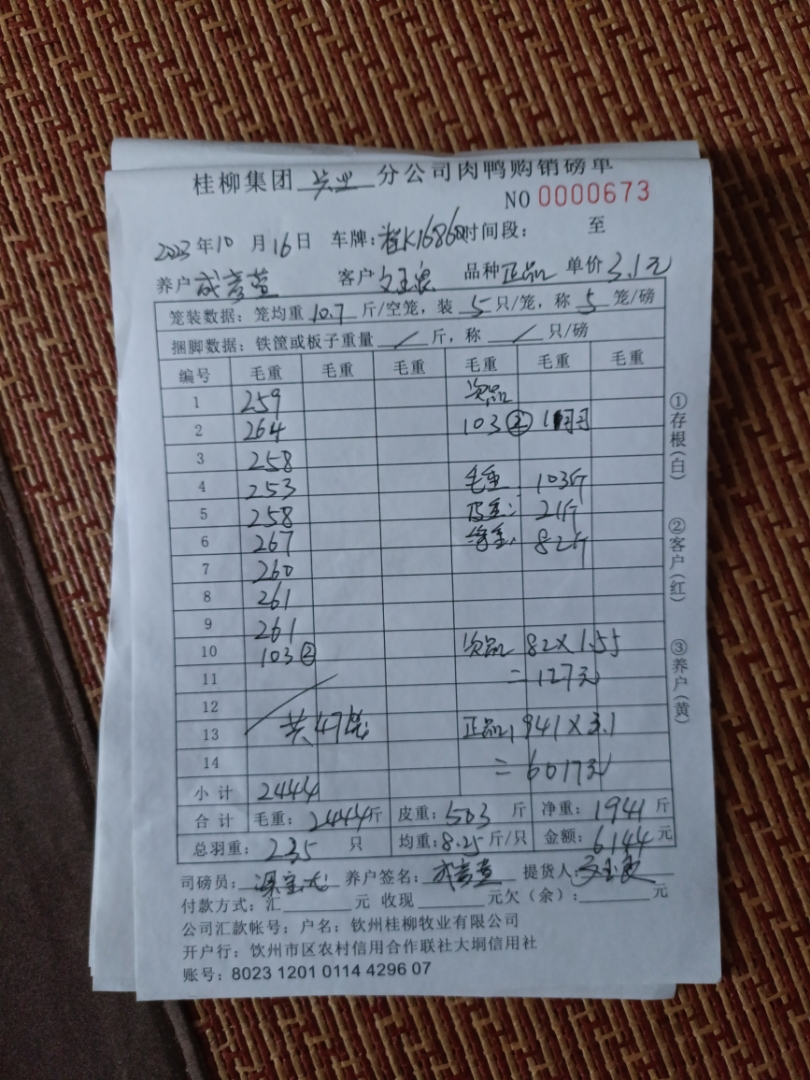 桂柳集团 兴业 分公司肉鸭购销磅单
NO 0000673
2023 年 10 月 16 日 车牌：桂K16868 时间段： 至
养户 成彦萱 客户 品种 正品 单价 3.1元
笼装数据：笼均重 10.7 斤/空笼，装 5 只/笼，称 5 笼/磅
捆脚数据：铁筐或板子重量 / 斤，称 / 只/磅
编号 毛重 毛重 毛重 毛重 毛重 毛重
1 259 次品
2 264 103 ②
3 258
4 253 毛重 103斤
5 258 皮重： 21斤
6 267 净重： 82斤
7 260
8 261
9 261
10 103 ② 次品 82×1.55
11 =127元
12
13 共47笼 正品，1941×3.1
14 =6017元
小计 2444
合计 毛重：2444斤 皮重：503 斤 净重：1941 斤
总羽重：235 只 均重：8.25斤/只 金额：6144 元
司磅员： 养户签名： 提货人：
付款方式：汇 元 收现 元欠（余）： 元
公司汇款帐号：户名：钦州桂柳牧业有限公司
开户行：钦州市区农村信用合作联社大垌信用社
账号：8023 1201 0114 4296 07
①存根（白）
②客户（红）
③养户（黄）